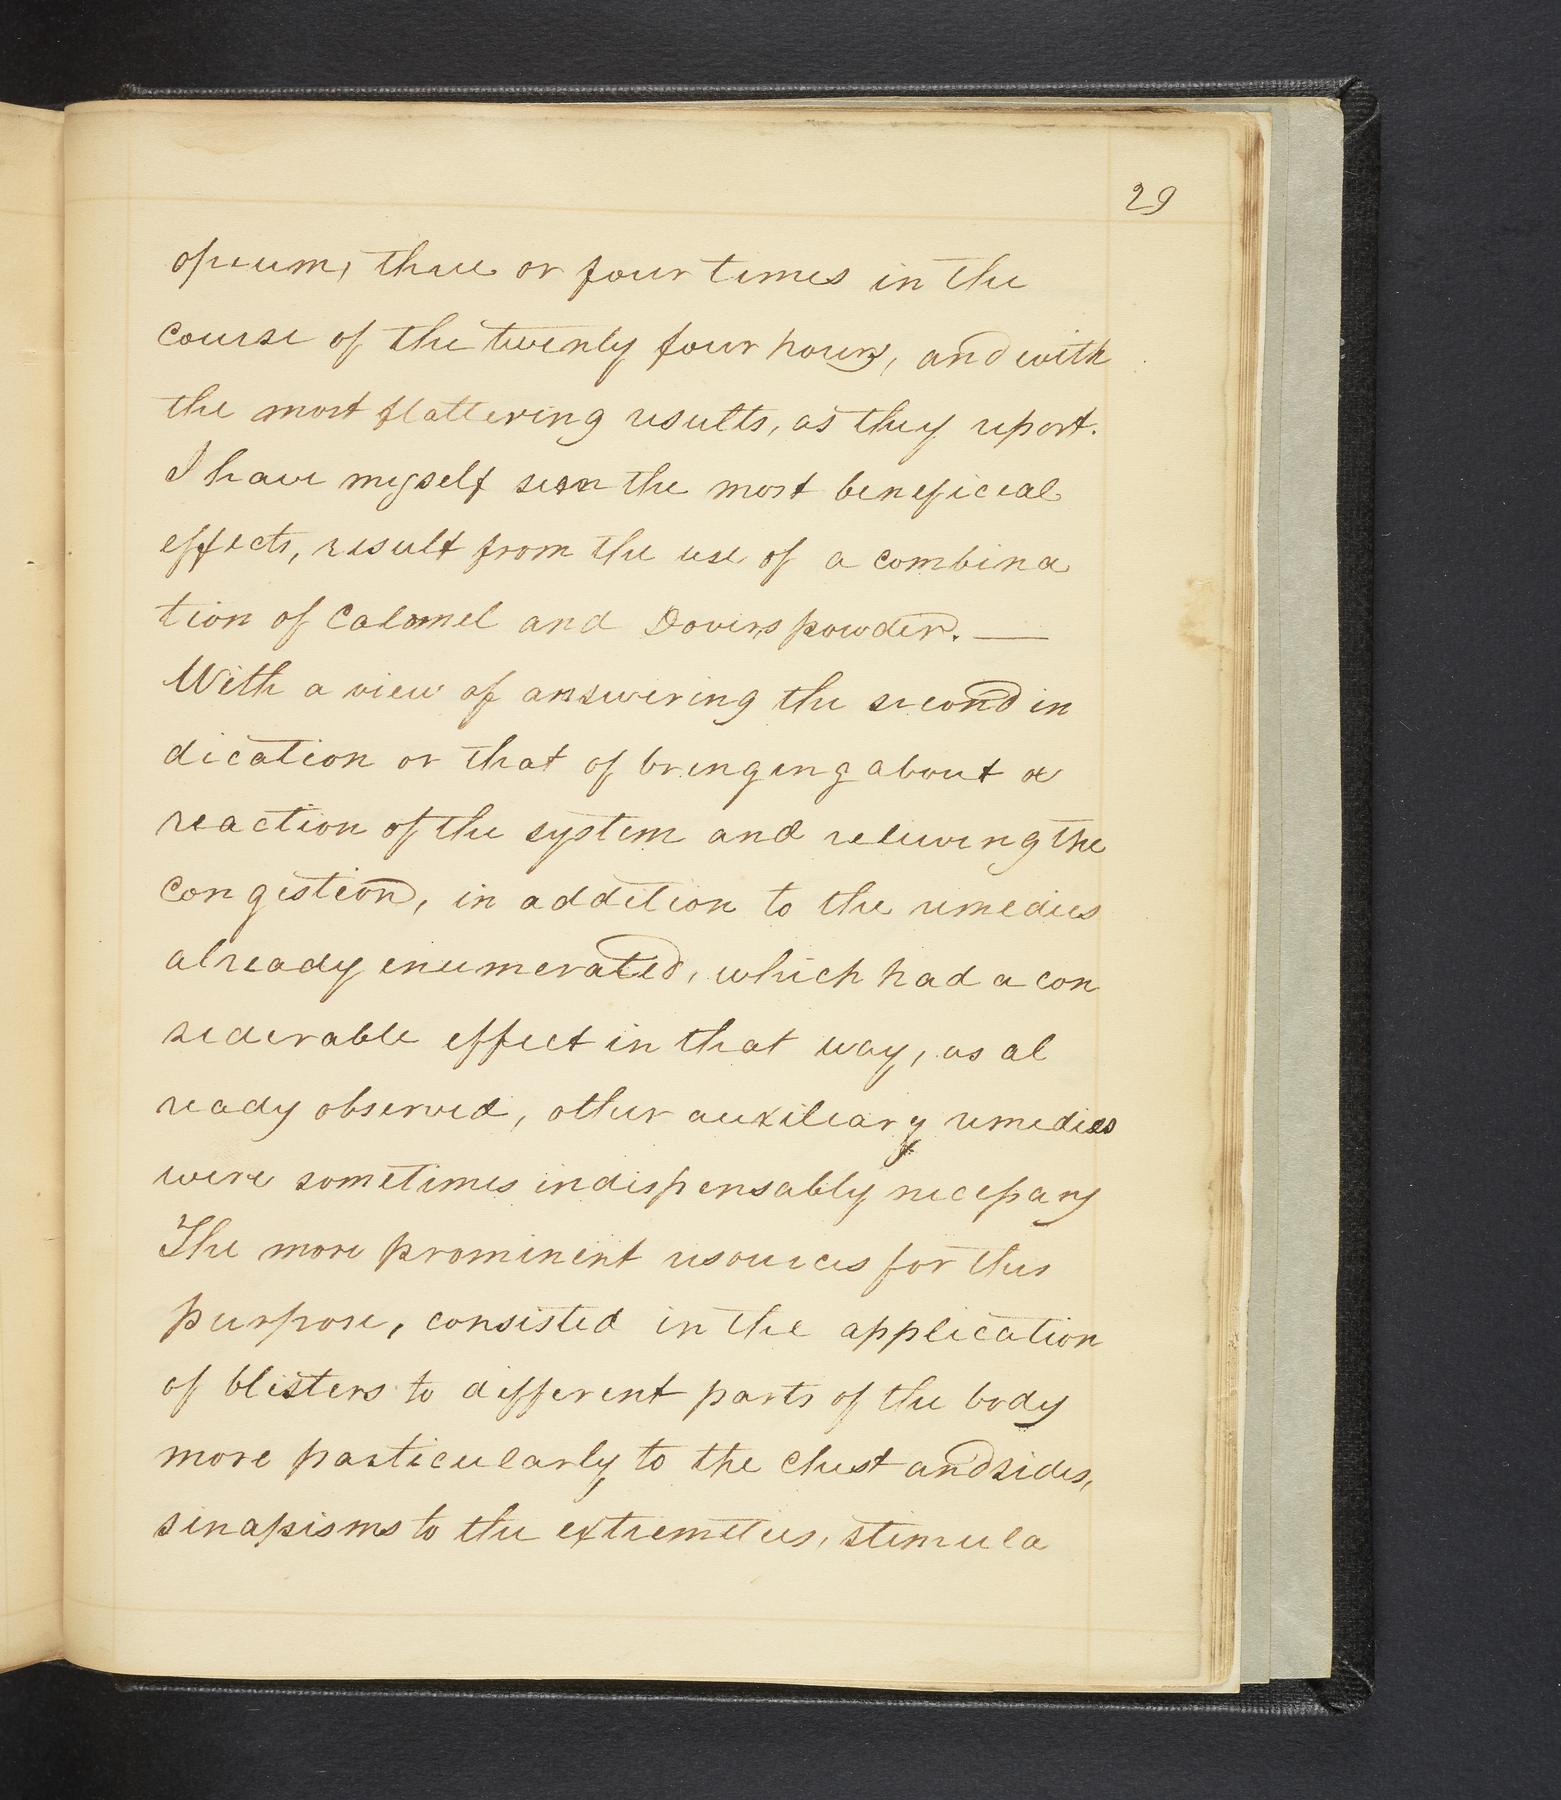 29
opium, three or four times in the
course of the twenly four hours, and with
the most flattering results, as they report.
I have myself seen the most beneficial
effects, result from the use of a combina
tion of Calomel and Dovers powder. —
With a view of answering the second in
dication or that of bringing about a
reaction of the system and relieving the
congestion, in addition to the remedies
already enumerated, which had a con
siderable effect in that way, as al
ready observed, other auxiliary remedies
were sometimes indispensably necessary
The more prominent resources for this
purpose, consisted in the application
of blisters to different parts of the body
more particularly to the chest and sides,
sinapisms to the extremeties, stimula